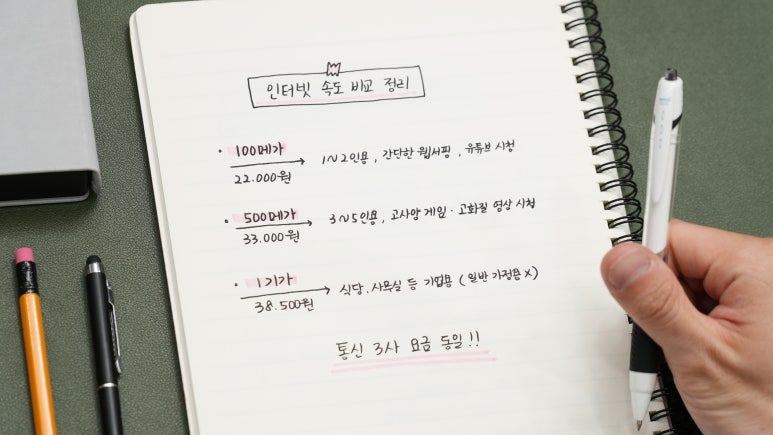 인터넷 속도 비교 정리
• 100메가 → 1~2인용, 간단한 웹서핑, 유튜브 시청
22.000원
• 500메가 → 3~5인용, 고사양 게임·고화질 영상 시청
33.000원
• 1기가 → 식당, 사무실 등 기업용 (일반 가정용 X)
38.500원
통신 3사 요금 동일!!